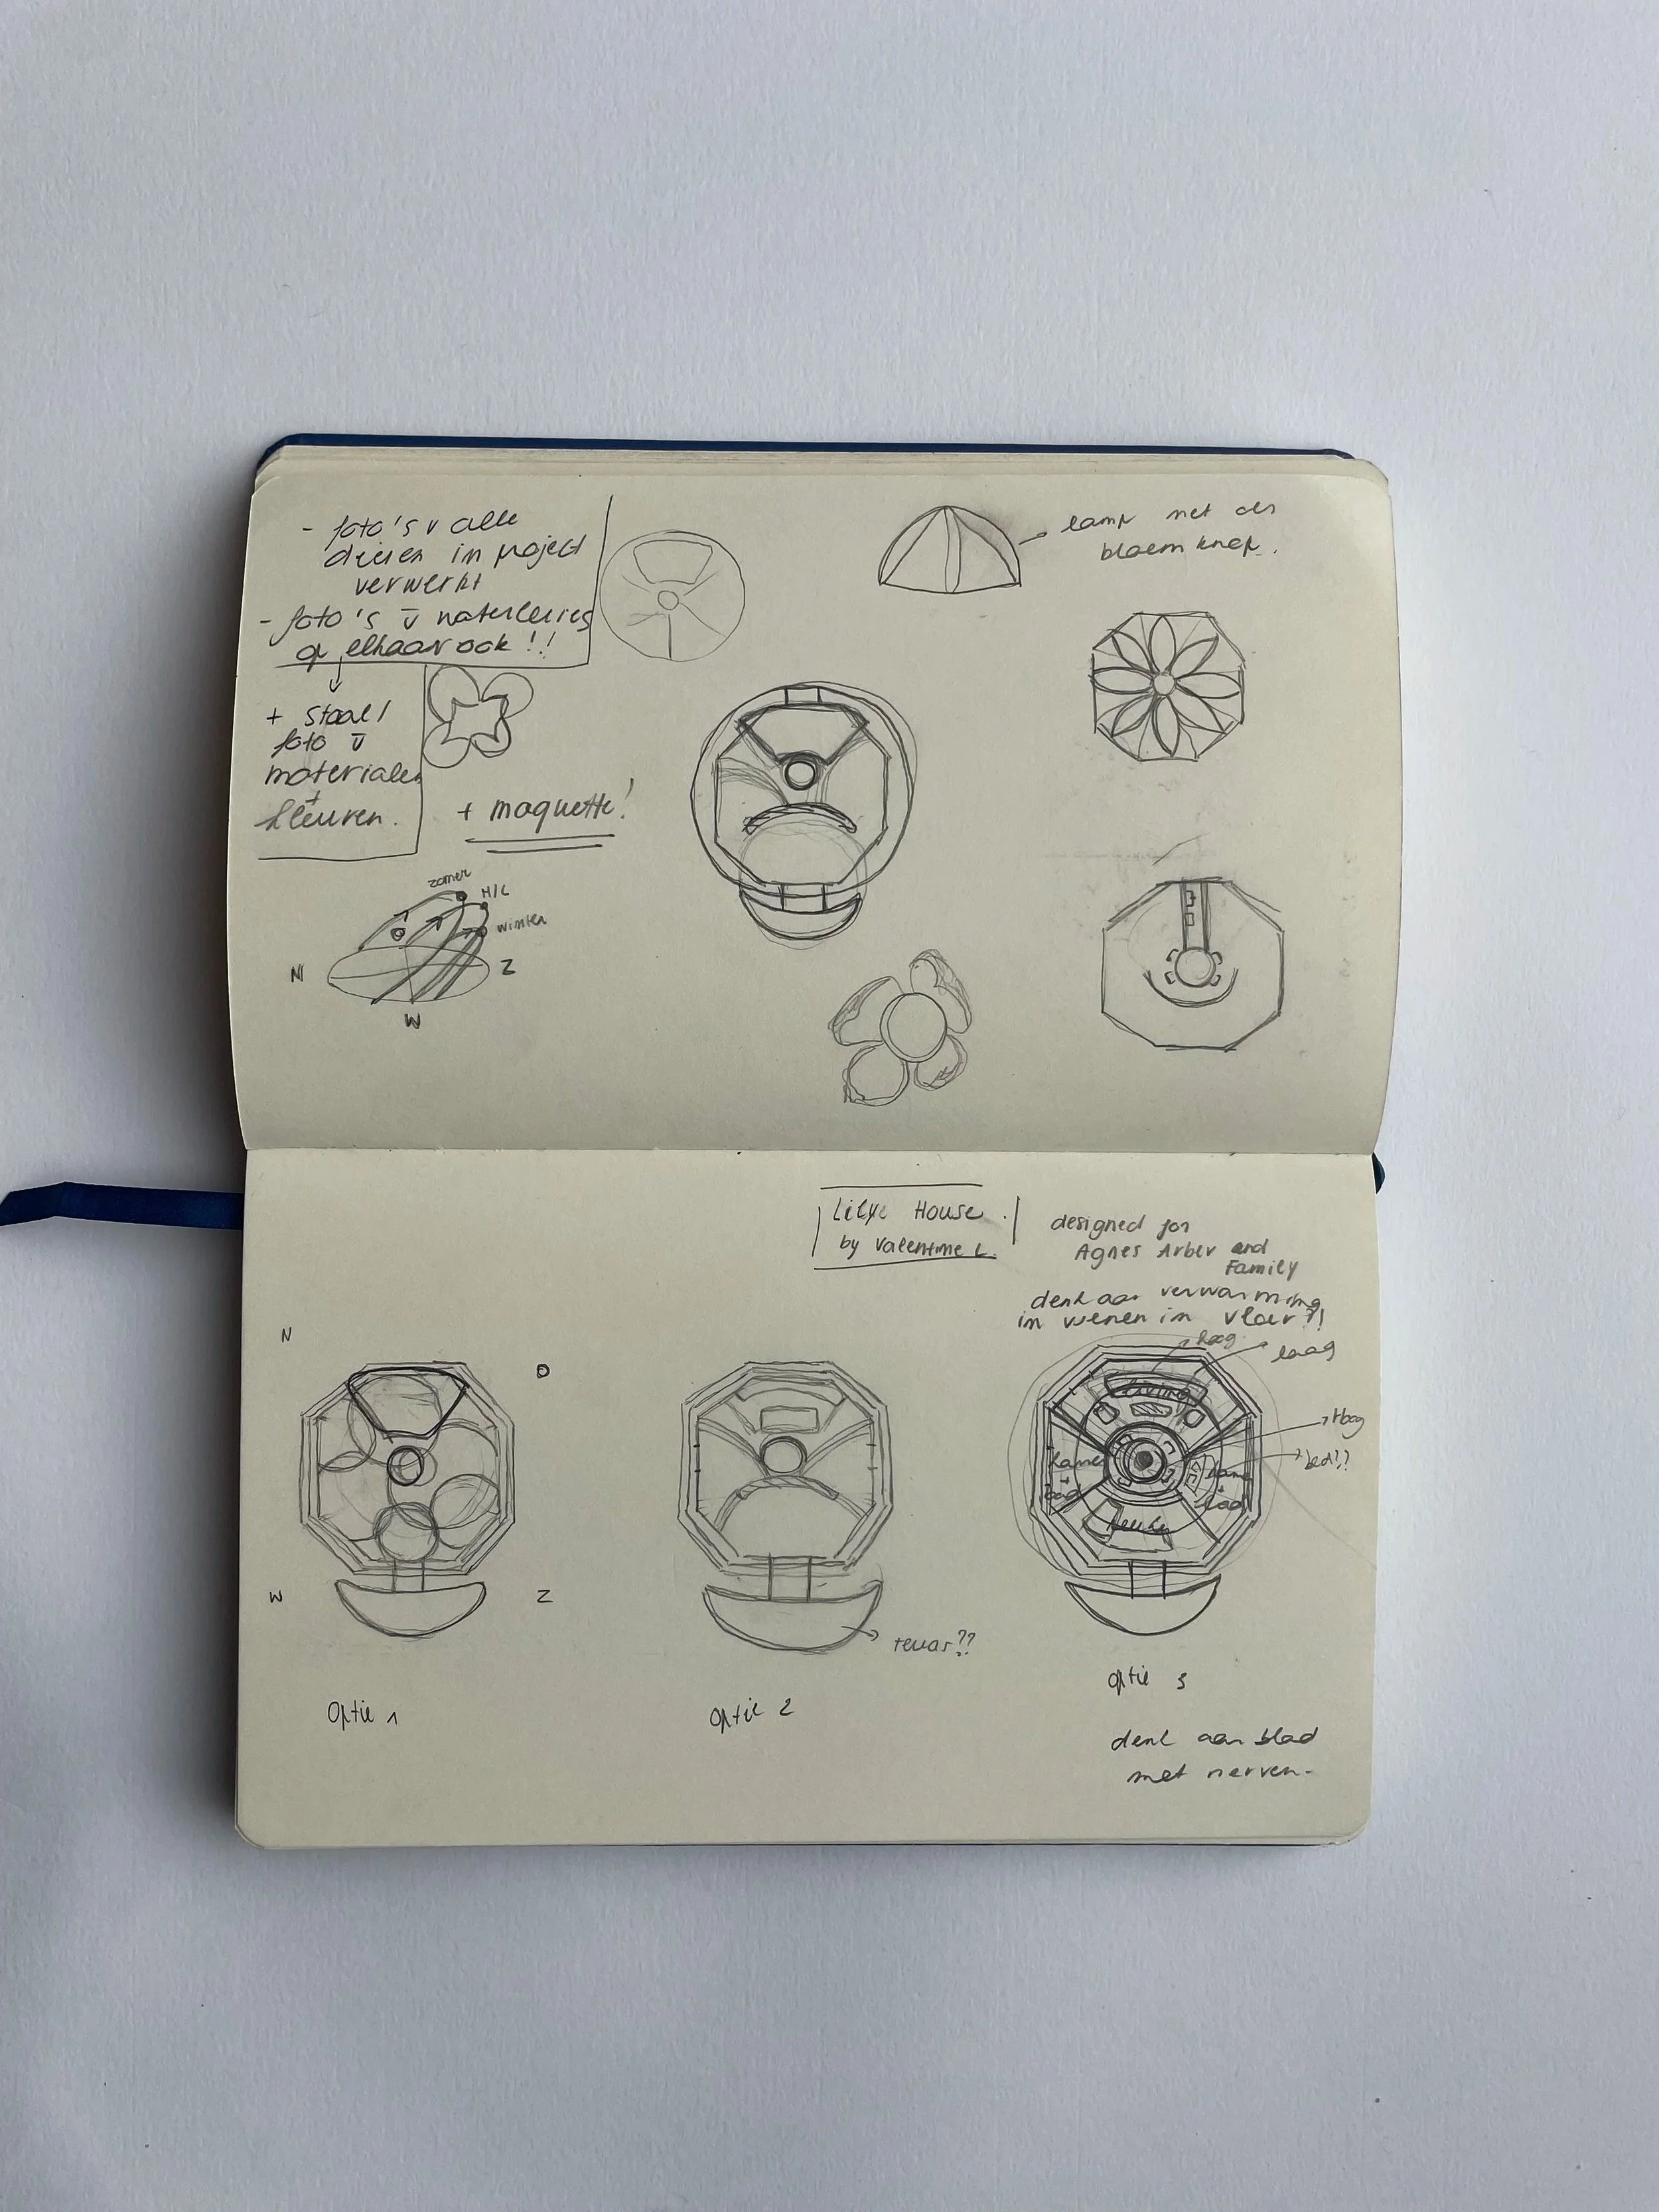 - foto's v alle
dieren in project
verwerkt
- foto's v waterlelies
op elkaar ook!!
+ staal/
foto v
materialen
+
kleuren.
+ maquette!
zomer
H/L
winter
N
Z
W
lamp met als
bloem knop.
Lilye House.
by Valentine L.
designed for
Agnes Arber and
Family
denk aan verwarming
in vloer?!
hoog
laag
N
O
W
Z
living
Hoog
bed!??
kamer
+
bad
kamer
+
bad
keuken
terras??
optie 1
optie 2
optie 3
denk aan blad
met nerven.